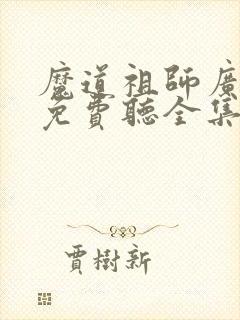 魔道祖師廣
免費聽全集
賈樹新